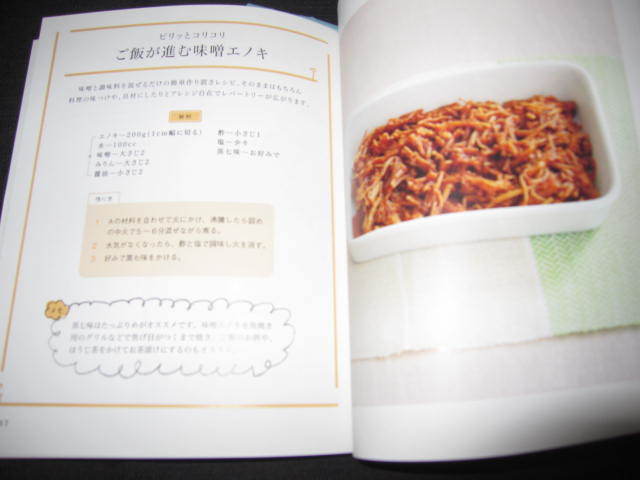 ピリッとコリコリ
ご飯が進む味噌エノキ
味噌と調味料を混ぜるだけの簡単作り置きレシピ。そのままはもちろん
料理の味つけや、具材にしたりとアレンジ自在でレパートリーが広がります。
材料
エノキ—200g(1cm幅に切る)
水—100cc
味噌—大さじ2
みりん—大さじ2
醤油—小さじ2
酢—小さじ1
塩—少々
黒七味—お好みで
作り方
1 Aの材料を合わせて火にかけ、沸騰したら弱めの中火で5〜6分混ぜながら煮る。
2 水気がなくなったら、酢と塩で調味し火を消す。
3 好みで黒七味をかける。
メモ
黒七味はたっぷりめがオススメです。味噌エノキを魚焼き
用のグリルなどで焦げ目がつくまで焼き、ご飯のお供や、
ほうじ茶をかけてお茶漬けにするのも